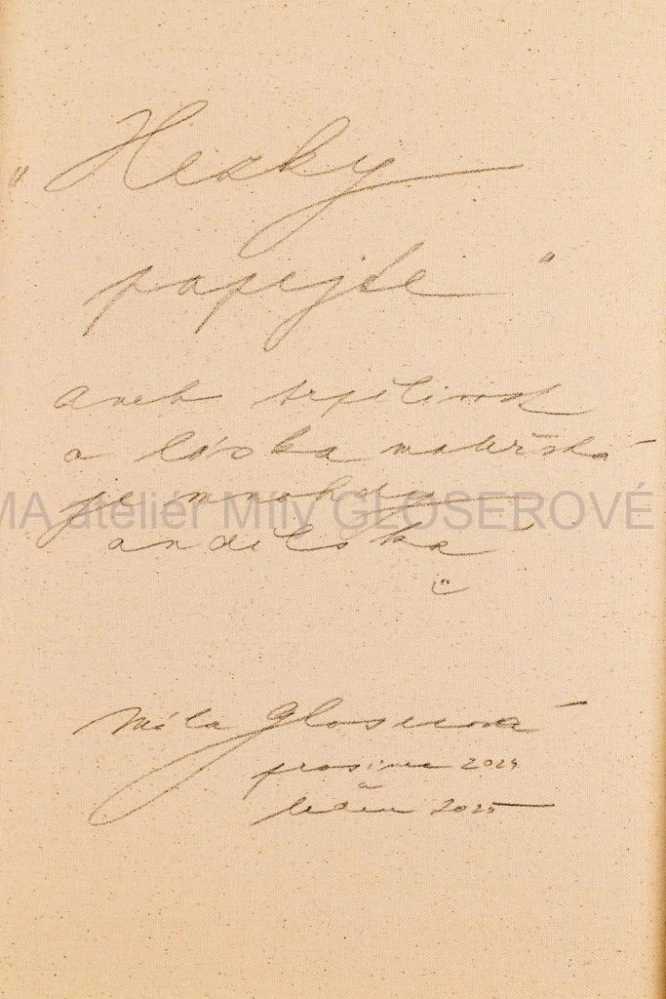 „Hezky
papejte"
aneb trpělivost
a láska mateřská
je mnohdy
andělská
Míla Gloserová
prosinec 2024
a
leden 2025
MA ateliér Míly GLOSEROVÉ